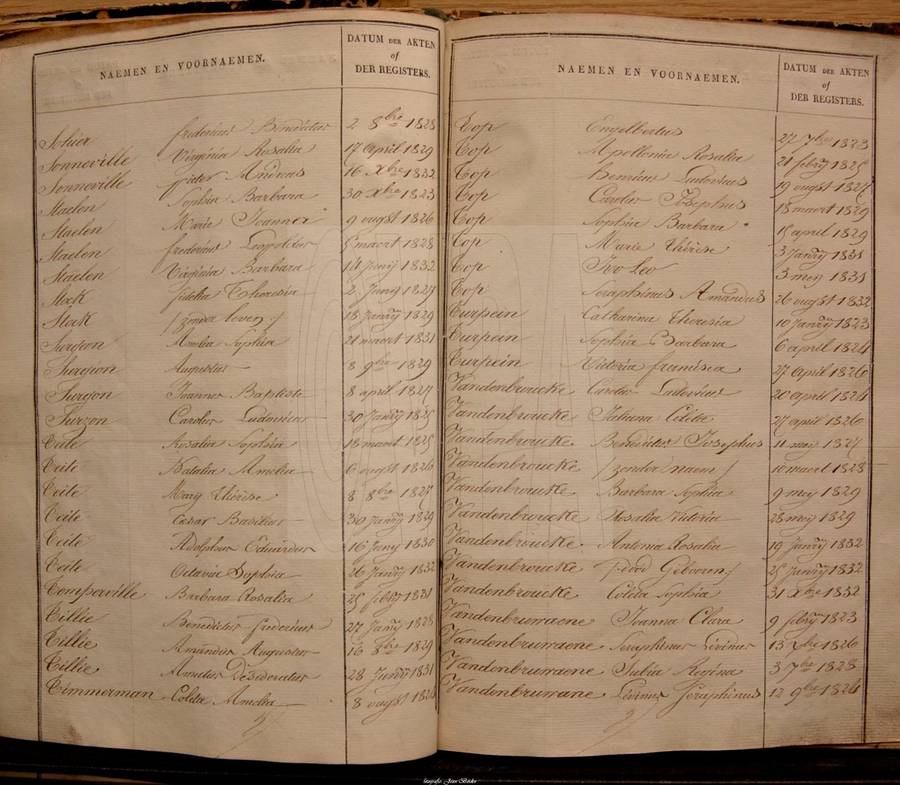 NAEMEN EN VOORNAEMEN. DATUM DER AKTEN
of
DER REGISTERS.
fredericus Benedictus 2 8bre 1828
Sonneville Virginia Rosalia 17 april 1829
Sonneville pieter Andreas 16 Xbre 1832
Staelen Sophia Barbara 30 Xbre 1823
Staelen Marie Joanna 9 augst 1826
Staelen fredericus Leopoldus 5 maart 1828
Staelen Virginia Barbara 14 Junij 1832
Stock fidelia Theresia 2 Junij
Stock /zonder leven/ 18 Janrij 1829
Amelia Sophia 21 maart 1831
Augustus 8 9bre 1829
Surgon Joannes Baptiste 8 april 1827
Carolus Ludovicus 30 Janrij 1825
Rosalia Sophia 18 maart 1825
Natalia Amelia 6 augst 1826
Marij Thérèse 8 8bre
Cesar Basilius 30 Janrij 1829
Adolphus Eduardus 16 1830
Octavia Sophia 26 Janrij 1832
Comperville Barbara Rosalia 25 febrij 1831
Tillie Benedictus fredericus 27 Janrij 1828
Tillie Amandus Augustus 16 8bre 1829
Tillie Amatus Desideratus 28 Junij 1831
Timmerman Coleta Amelia 8 augst 1824
NAEMEN EN VOORNAEMEN. DATUM DER AKTEN
of
DER REGISTERS.
Top Engelbertus 22 7bre 1823
Top Apollonia Rosalia 21 febrij 1825
Top Henricus Ludovicus 19 augst 1827
Top Carolus Josephus 18 maart 1829
Top Sophia Barbara 15 april 1829
Top Marie Thérèse 3 Janrij 1831
Top Ivo Leo 3 meij 1831
Top Seraphinus Amandus 26 augst 1832
Turpein Catharina Theresia 10 Janrij 1823
Turpein Sophia Barbara 6 april 1824
Turpein Victoria francisca 27 April 1826
Vandenbroucke Carolus Ludovicus 20 april 1824
Vandenbroucke Juliana Colette 27 april 1826
Vandenbroucke Benedictus Josephus 11 meij 1827
Vandenbroucke /zonder naem/ 10 maart 1828
Vandenbroucke Barbara Sophia 9 meij 1829
Vandenbroucke Rosalia Victoria 28 meij 1829
Vandenbroucke Antonia Rosalia 19 Janrij 1832
Vandenbroucke /dood Geboren/ 25 Janrij 1832
Vandenbroucke Coleta Sophia 31 Xbre 1832
Vandenburraene Joanna Clara 9 febrij 1823
Vandenburraene Seraphinus Livinus 1826
Vandenburraene Julia Regina 3 7bre 1828
Vandenburrane Livinus Seraphinus 12 9bre 1824
fotografie: Johan Bekaert